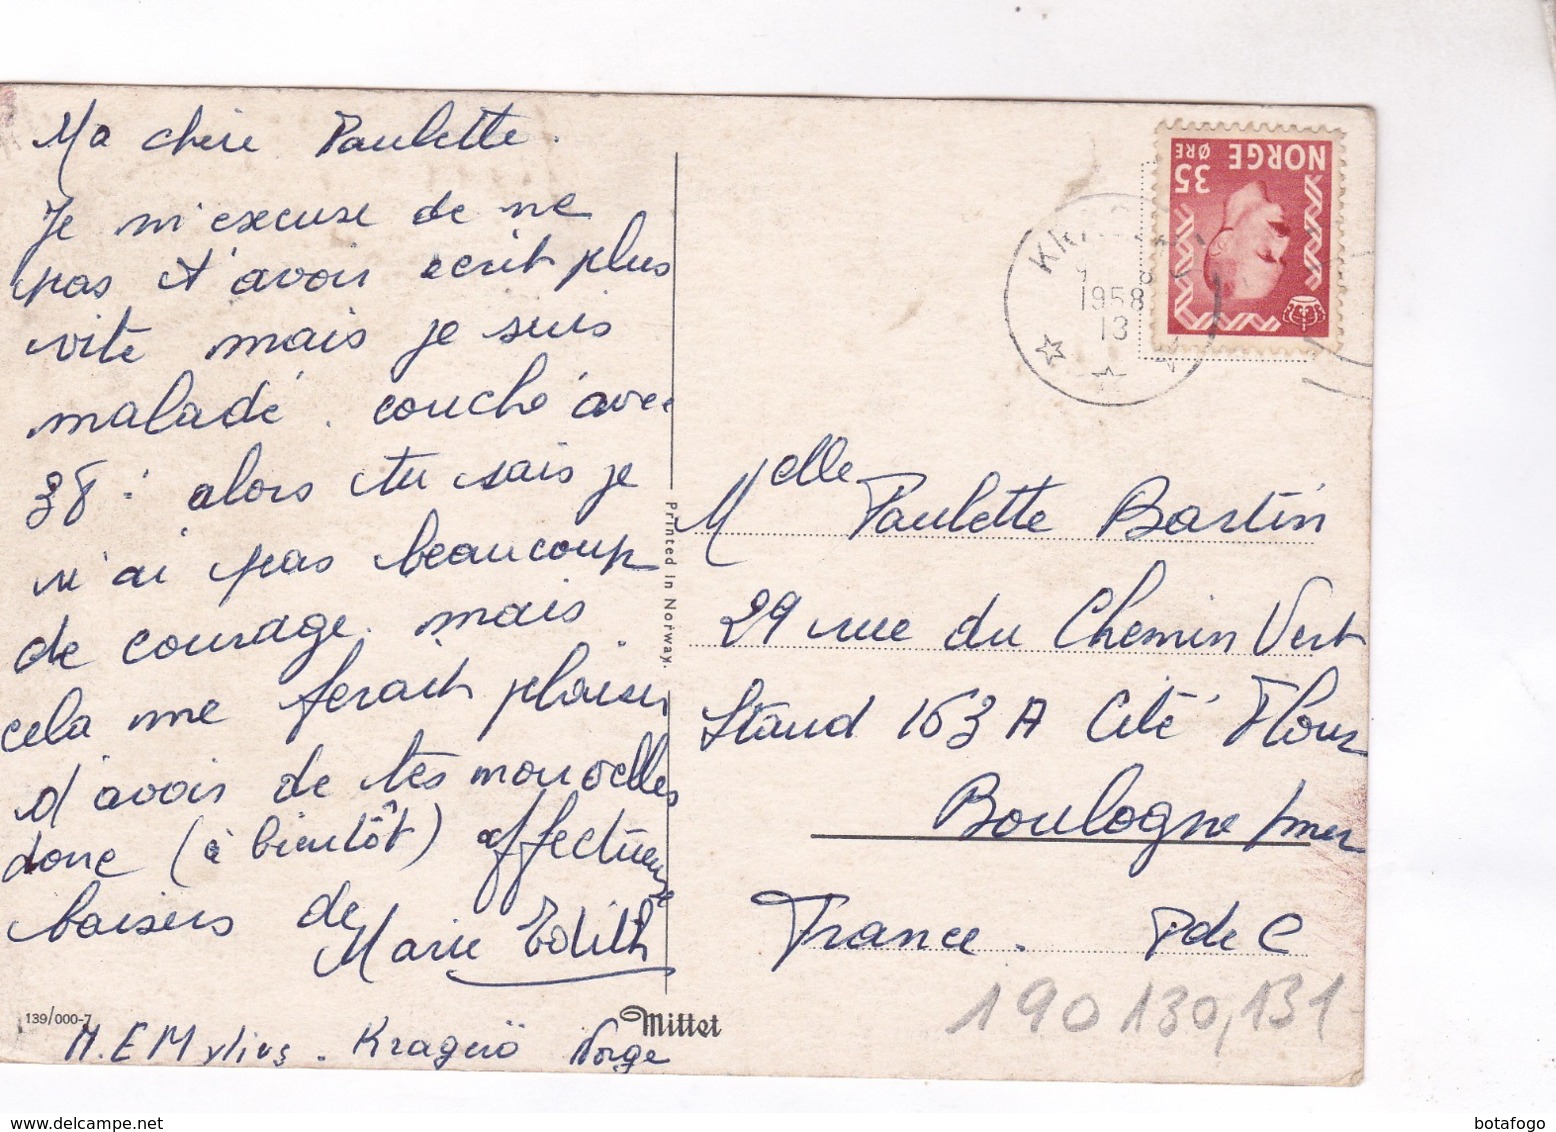 Ma chère Paulette.
Je m'excuse de ne
pas t'avoir écrit plus
vite mais je suis
malade. couché avec
38: alors tu sais je
n'ai pas beaucoup
de courage. mais
cela me ferait plaisir
d'avoir de tes nouvelles
donc (à bientôt) affectueux
baisers de
Marie Edith
139/000-7
M.E Mylius - Kragerö Norge
Mittet
Printed in Norway.
NORGE
35 ØRE
1958
13
Melle Paulette Bastin
29 rue du Chemin Vert
Stand 163 A Cité
Boulogne s/mer
France. P de C
190 130,131
botafogo